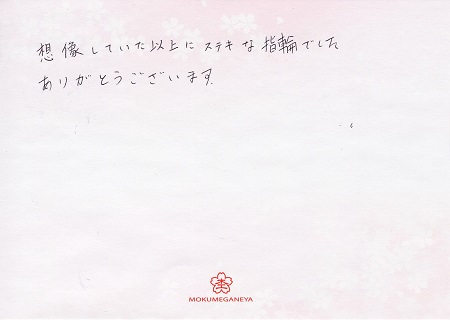 想像していた以上にステキな指輪でした
ありがとうございます
MOKUMEGANEYA